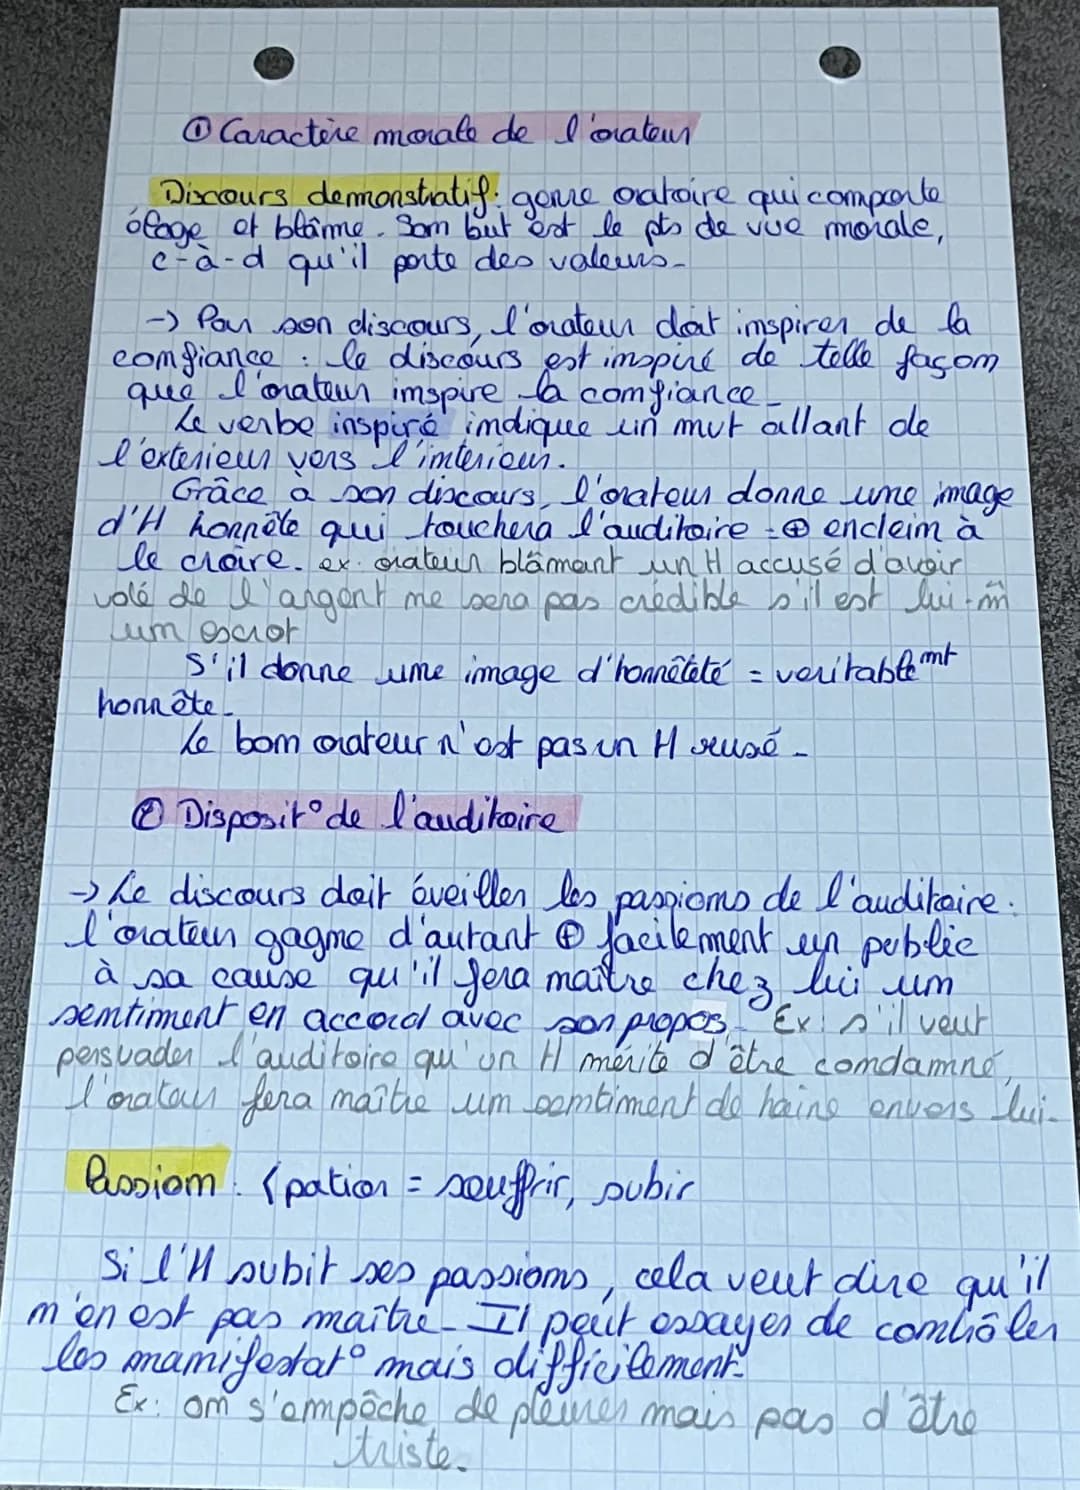 ① Caractère morale de l'orateur
Discours demonstratif: genre oratoire qui comporte
éloge et blâme. Son but est le pts de vue morale,
c-à-d qu'il porte des valeurs.
→ Par son discours, l'orateur doit inspirer de la
confiance : le discours est inspiré de telle façon
que l'orateur inspire la confiance.
Le verbe inspiré indique un mvt allant de
l'exterieur vers l'interieur.
Grâce à son discours, l'orateur donne une image
d'H honnête qui touchera l'auditoire = ⊕ encleim à
le croire. ex: orateur blâmant un H accusé d'avoir
volé de l'argent ne sera pas crédible s'il est lui-m̂
un escrot
S'il donne une image d'honnêteté = veritablemt
honnête.
Le bon orateur n'est pas un H rusé.
② Disposit° de l'auditoire
→ Le discours doit éveiller les passions de l'auditoire:
l'orateur gagne d'autant ⊕ facilement un public
à sa cause qu'il fera maître chez lui un
sentiment en accord avec son propos. Ex: s'il veut
persuader l'auditoire qu'un H mérite d'être condamné,
l'orateur fera maître un sentiment de haine envers lui.
Passion : < pation = souffrir, subir
Si l'H subit ses passions, cela veut dire qu'il
n'en est pas maître. Il peut essayer de contrôler
les manifestat° mais difficilement.
Ex: on s'empêche de pleurer mais pas d'être
triste.